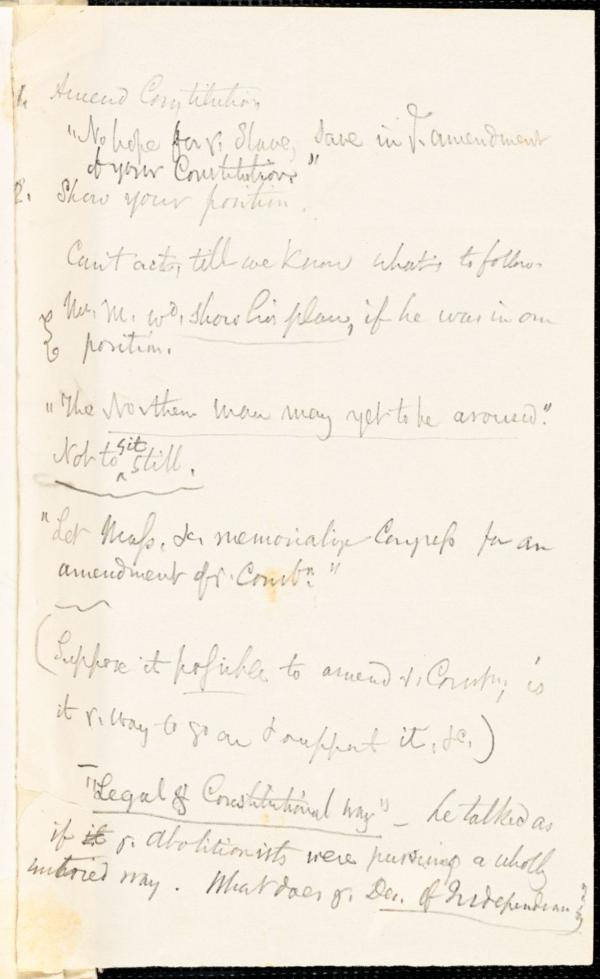 1. Amend Constitution
"No hope for ye. Slave, save in ye. amendment
of your Constitution."
2. Show your position.
Can't act, till we know what's to follow.
Mr. M. wd. show his plan, if he was in our
position.
"The Northern man may yet to be aroused."
Not to sit still.
"Let Mass. &c. memorialize Congress for an
amendment of ye. Constn."
(Suppose it possible to amend ye. Constn., is
it ye. way to go on & support it, &c.)
"Legal & Constitutional way" – he talked as
if it ye. abolitionists were pursuing a wholly
untried way. What does ye. Dec. of Independence